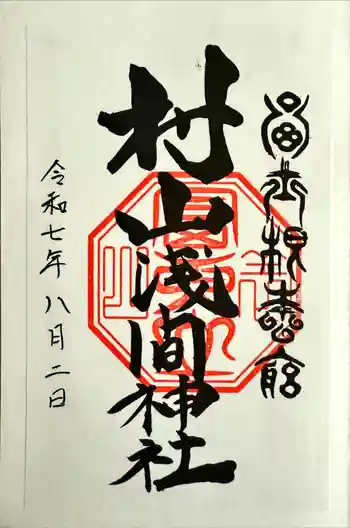 富士根本宮
村山浅間神社
令和七年八月二日